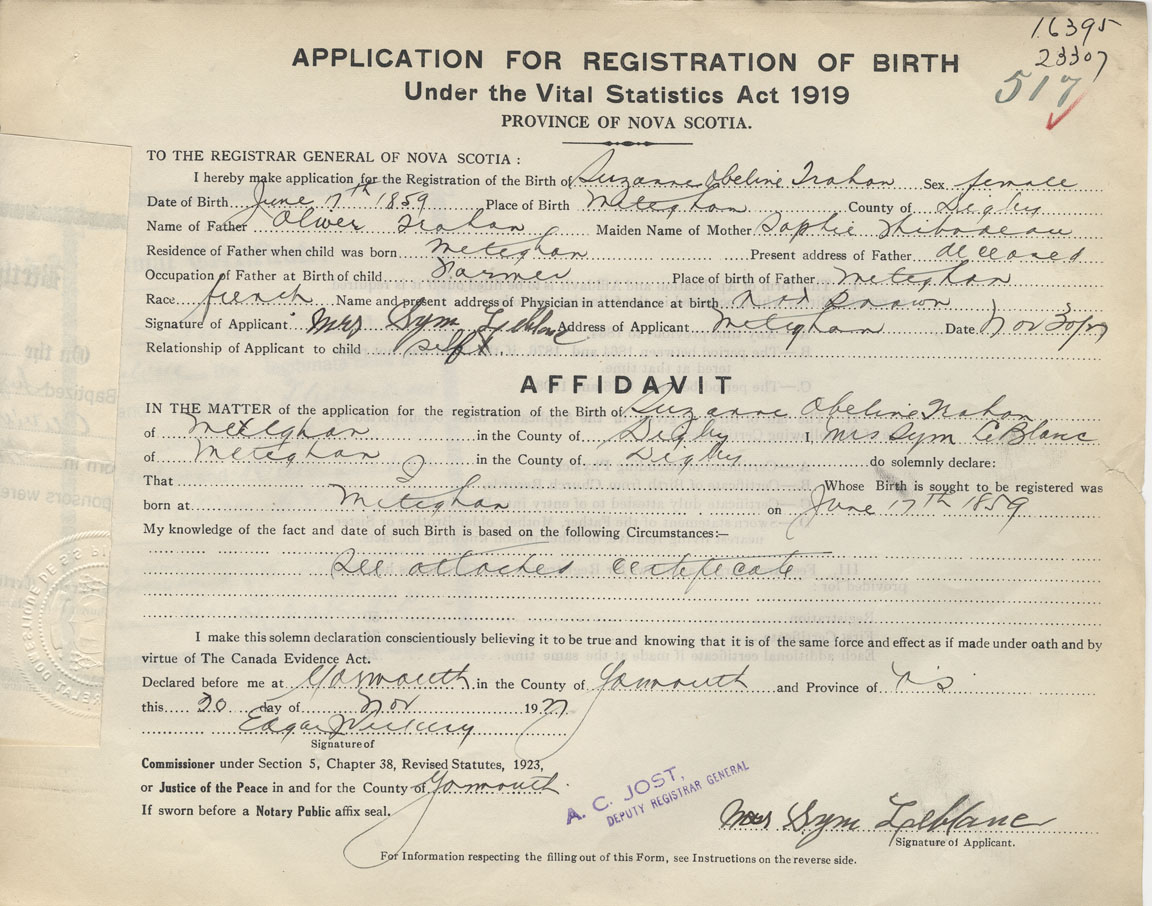 16395
23307
517
APPLICATION FOR REGISTRATION OF BIRTH
Under the Vital Statistics Act 1919
PROVINCE OF NOVA SCOTIA.
TO THE REGISTRAR GENERAL OF NOVA SCOTIA :
I hereby make application for the Registration of the Birth of Suzanne Obeline Trahan Sex female
Date of Birth June 17th 1859 Place of Birth Meteghan County of Digby
Name of Father Oliver Trahan Maiden Name of Mother Sophie Thibodeau
Residence of Father when child was born Meteghan Present address of Father deceased
Occupation of Father at Birth of child Farmer Place of birth of Father Meteghan
Race french Name and present address of Physician in attendance at birth not known
Signature of Applicant Mrs Sym Leblanc Address of Applicant Meteghan Date Nov 30/27
Relationship of Applicant to child self
AFFIDAVIT
IN THE MATTER of the application for the registration of the Birth of Suzanne Obeline Trahan
of Meteghan in the County of Digby I, Mrs Sym LeBlanc
of Meteghan in the County of Digby do solemnly declare:
That I Whose Birth is sought to be registered was
born at Meteghan on June 17th 1859
My knowledge of the fact and date of such Birth is based on the following Circumstances:—
See attached certificate
I make this solemn declaration conscientiously believing it to be true and knowing that it is of the same force and effect as if made under oath and by
virtue of The Canada Evidence Act.
Declared before me at Yarmouth in the County of Yarmouth and Province of NS
this 30 day of Nov 1927
Edgar Vickery
Signature of
Commissioner under Section 5, Chapter 38, Revised Statutes, 1923,
or Justice of the Peace in and for the County of Yarmouth.
If sworn before a Notary Public affix seal.
A. C. JOST,
DEPUTY REGISTRAR GENERAL
Mrs Sym Leblanc
Signature of Applicant.
For Information respecting the filling out of this Form, see Instructions on the reverse side.